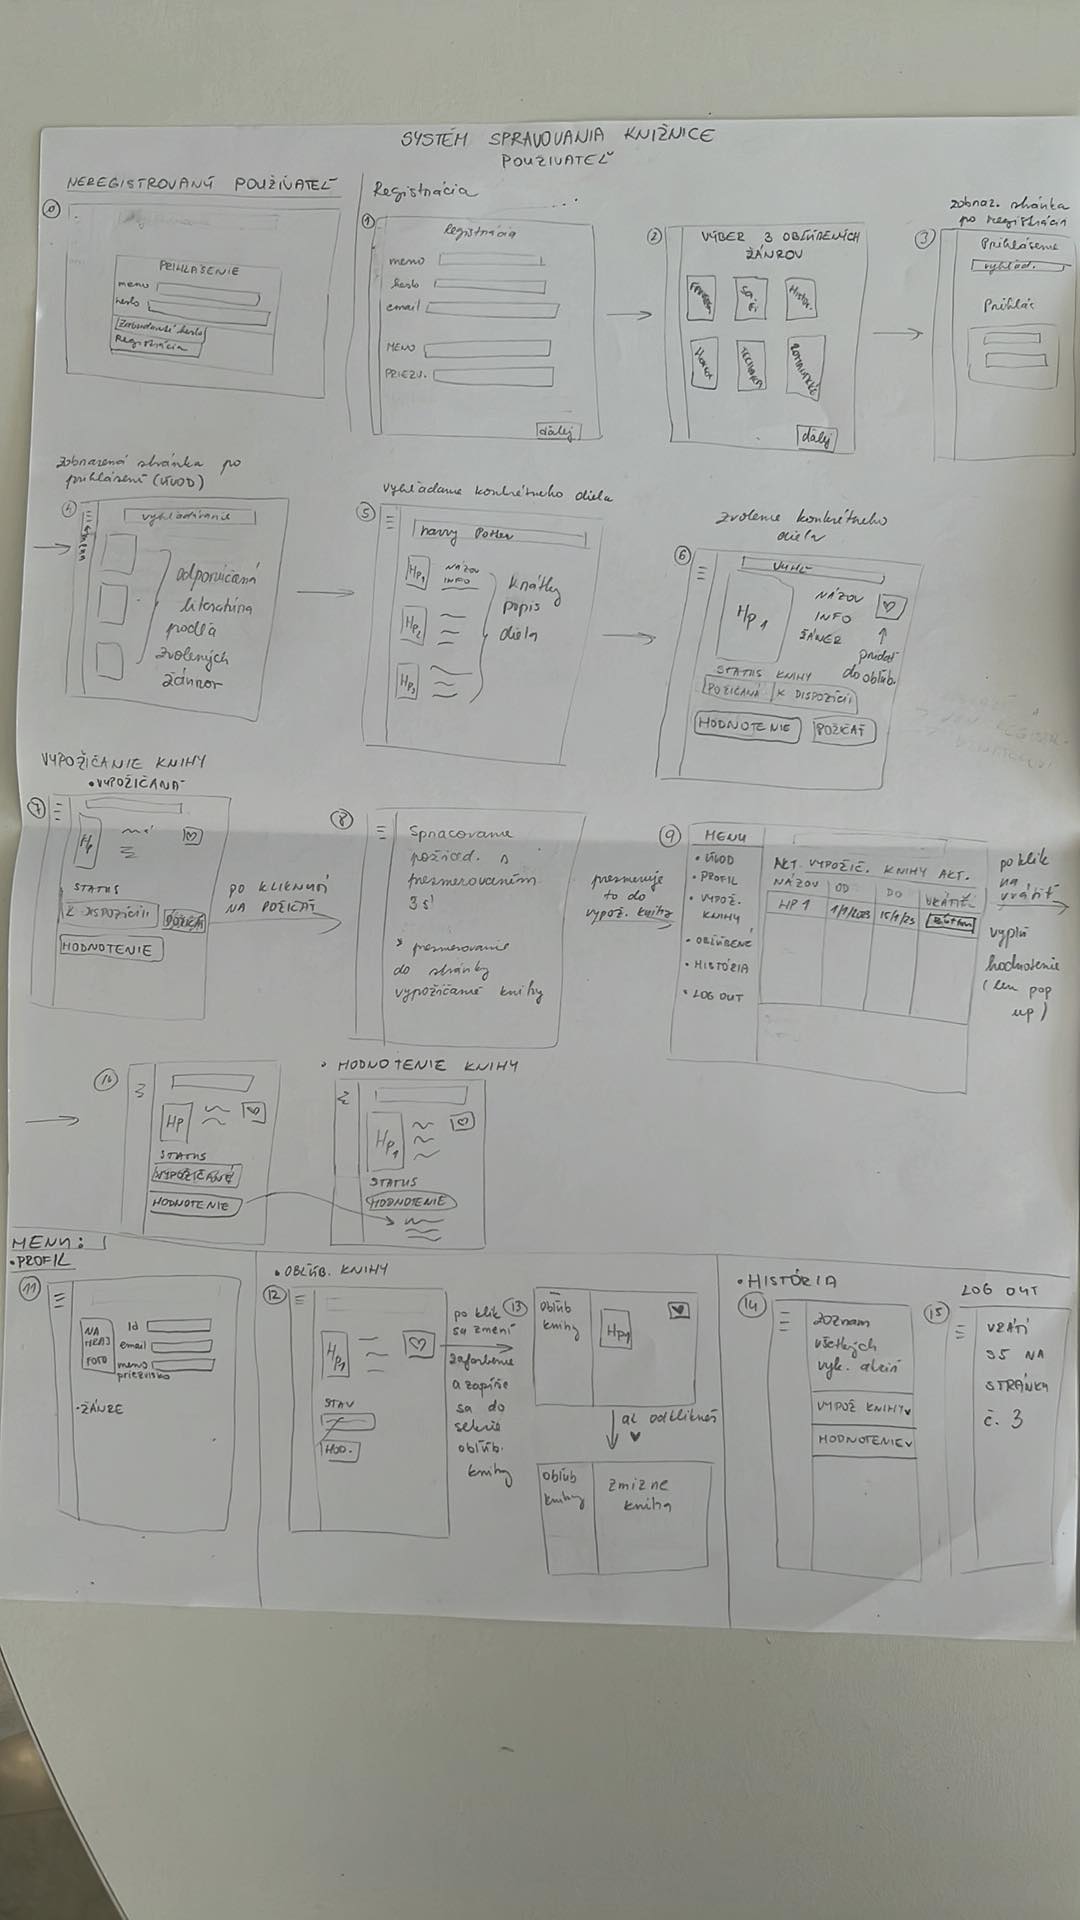 SYSTÉM SPRAVOVANIA KNIŽNICE
POUŽÍVATEĽ
NEREGISTROVANÝ POUŽÍVATEĽ
0
PRIHLÁSENIE
meno
heslo
Zabudnuté heslo
Registrácia
Registrácia
1
Registrácia
meno
heslo
email
MENO
PRIEZV.
ďalej
2
VÝBER 3 OBĽÚBENÝCH
ŽÁNROV
FANTASY
SCI
FI
HISTOR.
HOROR
ROMANTICKÉ
ďalej
zobraz. stránka
po registrácii
3
Prihlásenie
vyhľad.
Prihlás
zobrazená stránka po
prihlásení (ÚVOD)
4
vyhľadávanie
odporúčaná
literatúra
podľa
zvolených
žánrov
vyhľadanie konkrétneho diela
5
harry Potter
HP1
NÁZOV
INFO
HP2
HP3
krátky
popis
diela
zvolenie konkrétneho
diela
6
VYHĽ
HP1
NÁZOV
INFO
ŽÁNER
pridať
do obľúb.
STATUS KNIHY
POŽIČANÁ K DISPOZÍCII
HODNOTENIE POŽIČAŤ
VYPOŽIČANIE KNIHY
• VYPOŽIČANÁ
7
HP
STATUS
K DISPOZÍCII POŽIČAŤ
HODNOTENIE
PO KLIKNUTÍ
NA POŽIČAŤ
8
Spracovanie
požiad. s
presmerovaním
3 s'
* presmerovanie
do stránky
vypožičané knihy
presmeruje
to do
vypož. knihy
9
MENU
• ÚVOD
• PROFIL
• VYPOŽ.
KNIHY
• OBĽÚBENÉ
• HISTÓRIA
• LOG OUT
AKT. VYPOŽIČ. KNIHY AKT.
NÁZOV OD DO VRÁTIŤ
HP 1 1/1/2023 15/1/23
po klik
na
vrátiť
vyplň
hodnotenie
(len pop
up)
10
HP
STATUS
VYPOŽIČANÉ
HODNOTENIE
• HODNOTENIE KNIHY
HP1
STATUS
HODNOTENIE
MENU:
• PROFIL
11
NA
HRAJ
FOTO
Id
email
meno
priezvisko
• ŽÁNRE
• OBĽÚB. KNIHY
12
HP1
STAV
HOD.
po klik
sa zmení
zafarbenie
a zapíše
sa do
sekcie
obľúb.
knihy
13
obľúb
knihy
HP1
ak odklikneš
obľúb
knihy
zmizne
kniha
• HISTÓRIA
14
zoznam
všetkých
vyk. akcií
VYPOŽ KNIHY
HODNOTENIE
LOG OUT
15
VRÁTI
SA NA
STRÁNKU
č. 3